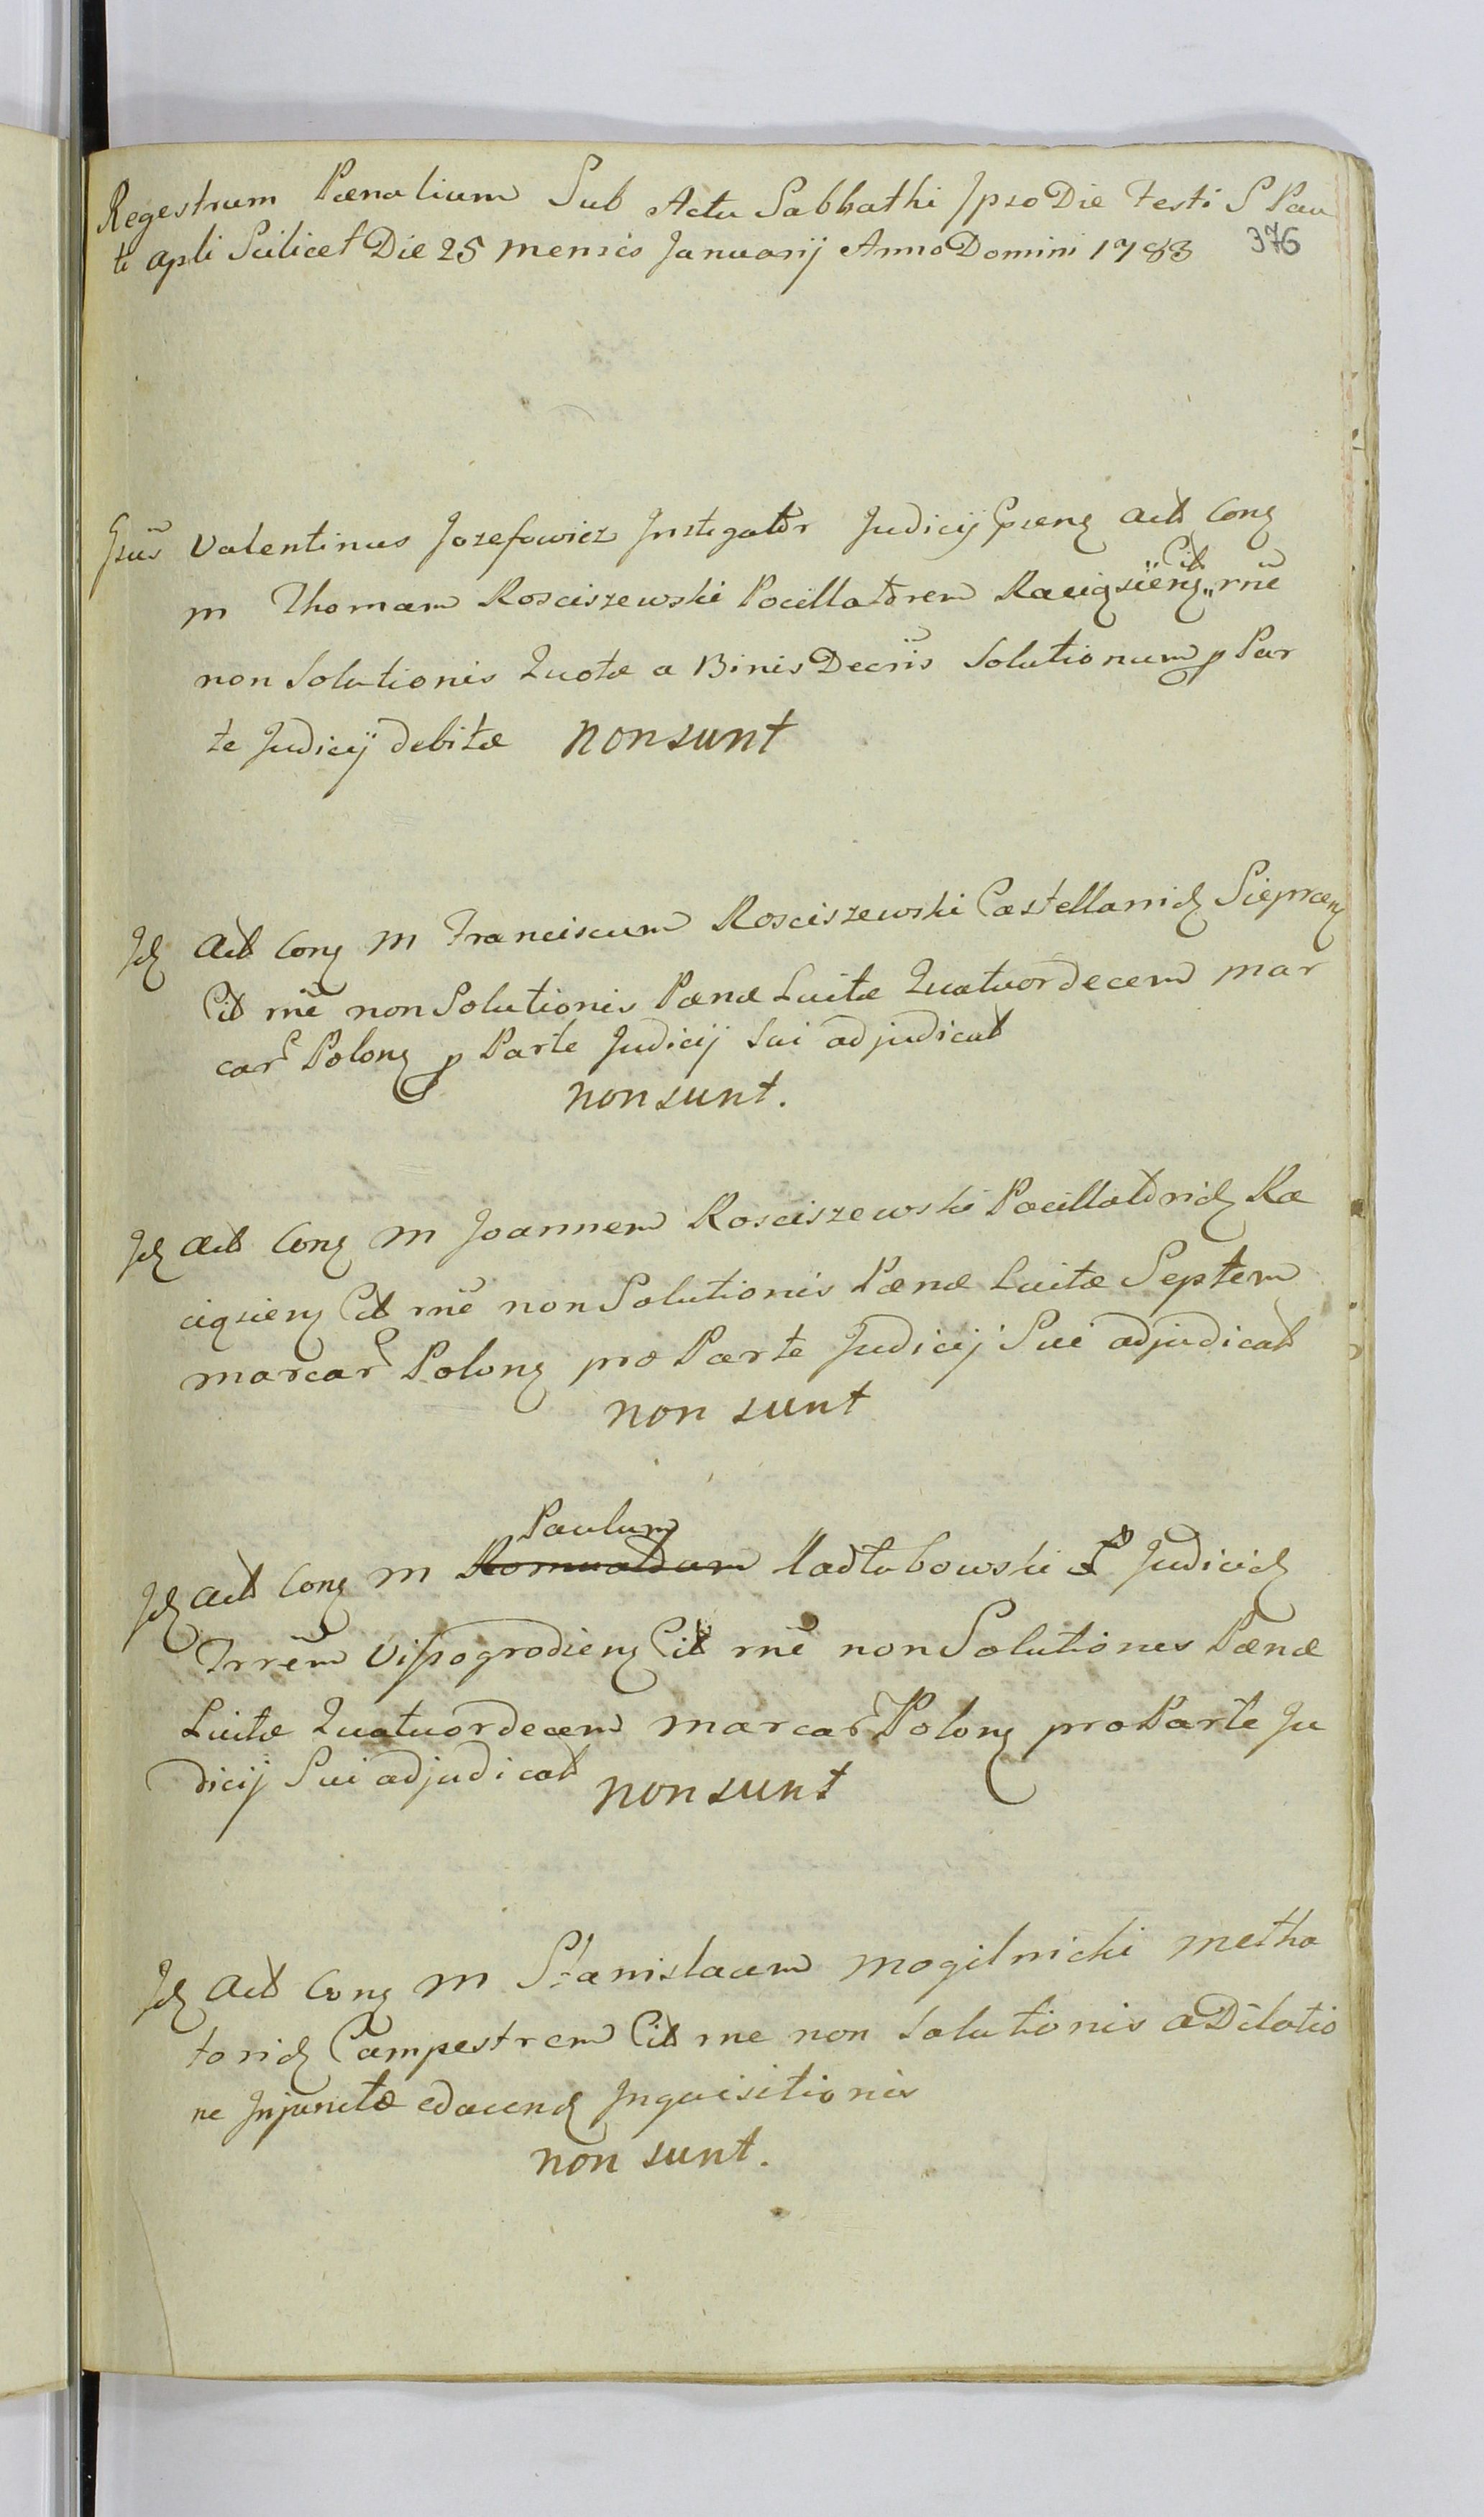 Regestrum Pænalium Sub Actu Sabbathi Ipso Die Festi S Pau
li Apli Scilicet Die 25 Mensis Januarij Anno Domini 1783 376
Gsus Valentinus Jozefowicz Instigator Judicij Psens Act Con
M Thomam Rosciszewski Pocillatorem Raciąsieñs Cit rñe
non Solutionis Quotæ a Binis Decrïs Solutionum p Par
te Judicij debitæ non sunt
Id Act Con M Franciscum Rosciszewski Castellanid Sieprcens
Cit rñe non Solutionis Pænæ Luitæ Quatuordecem mar
car Polon p Parte Judicij Sui adjudicat
non sunt.
Id Act Con M Joannem Rosciszewski Pocillatorid Ra
ciąsiens Cit rñe non Solutionis Pænæ Luitæ Septem
marcar Polon pro Parte Judicij Sui adjudicat
non sunt
Paulum
Id Act Con M Romualdum Nadłubowski Judicid
Trrem Vissogrodiens Cit rñe non Solutiones Pænæ
Luitæ Quatuordecem marcar Polon pro Parte Ju
dicij Sui adjudicat non sunt
Id Act Con M Stanislaum Mogilnicki metha
torid Campestrem Cit rne non Solutionis a Dilatio
ne Injunctæ educend Inquisitionis
non sunt.